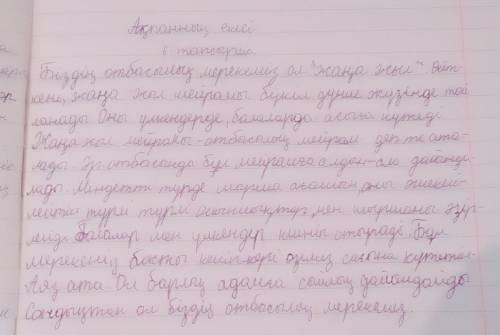 Ақпанның екісі
6 тапсырма
Біздің отбасылық мерекеміз ол "Жаңа жыл" Өйт
кені, жаңа жыл мейрамы бүкіл дүние жүзінде той
ланады Оны үлкендерде, балаларда асыға күтеді
Жаңа жыл мейрамы - отбасылық мейрам деп те ата-
лады Әр отбасында бұл мейрамға алдын-ала дайында
лады Міндетті түрде шырша оны әшекей
лейтін түрлі түрлі мен шыршаны әзір-
лейді Балалар мен үлкендер күнін отырады Бұл
мерекенің басты кейіпкері сағына күтетін
Аяз ата Ол барлық адамға сыйлық дайындайды
Сондықтан ол біздің отбасылық мерекеміз.